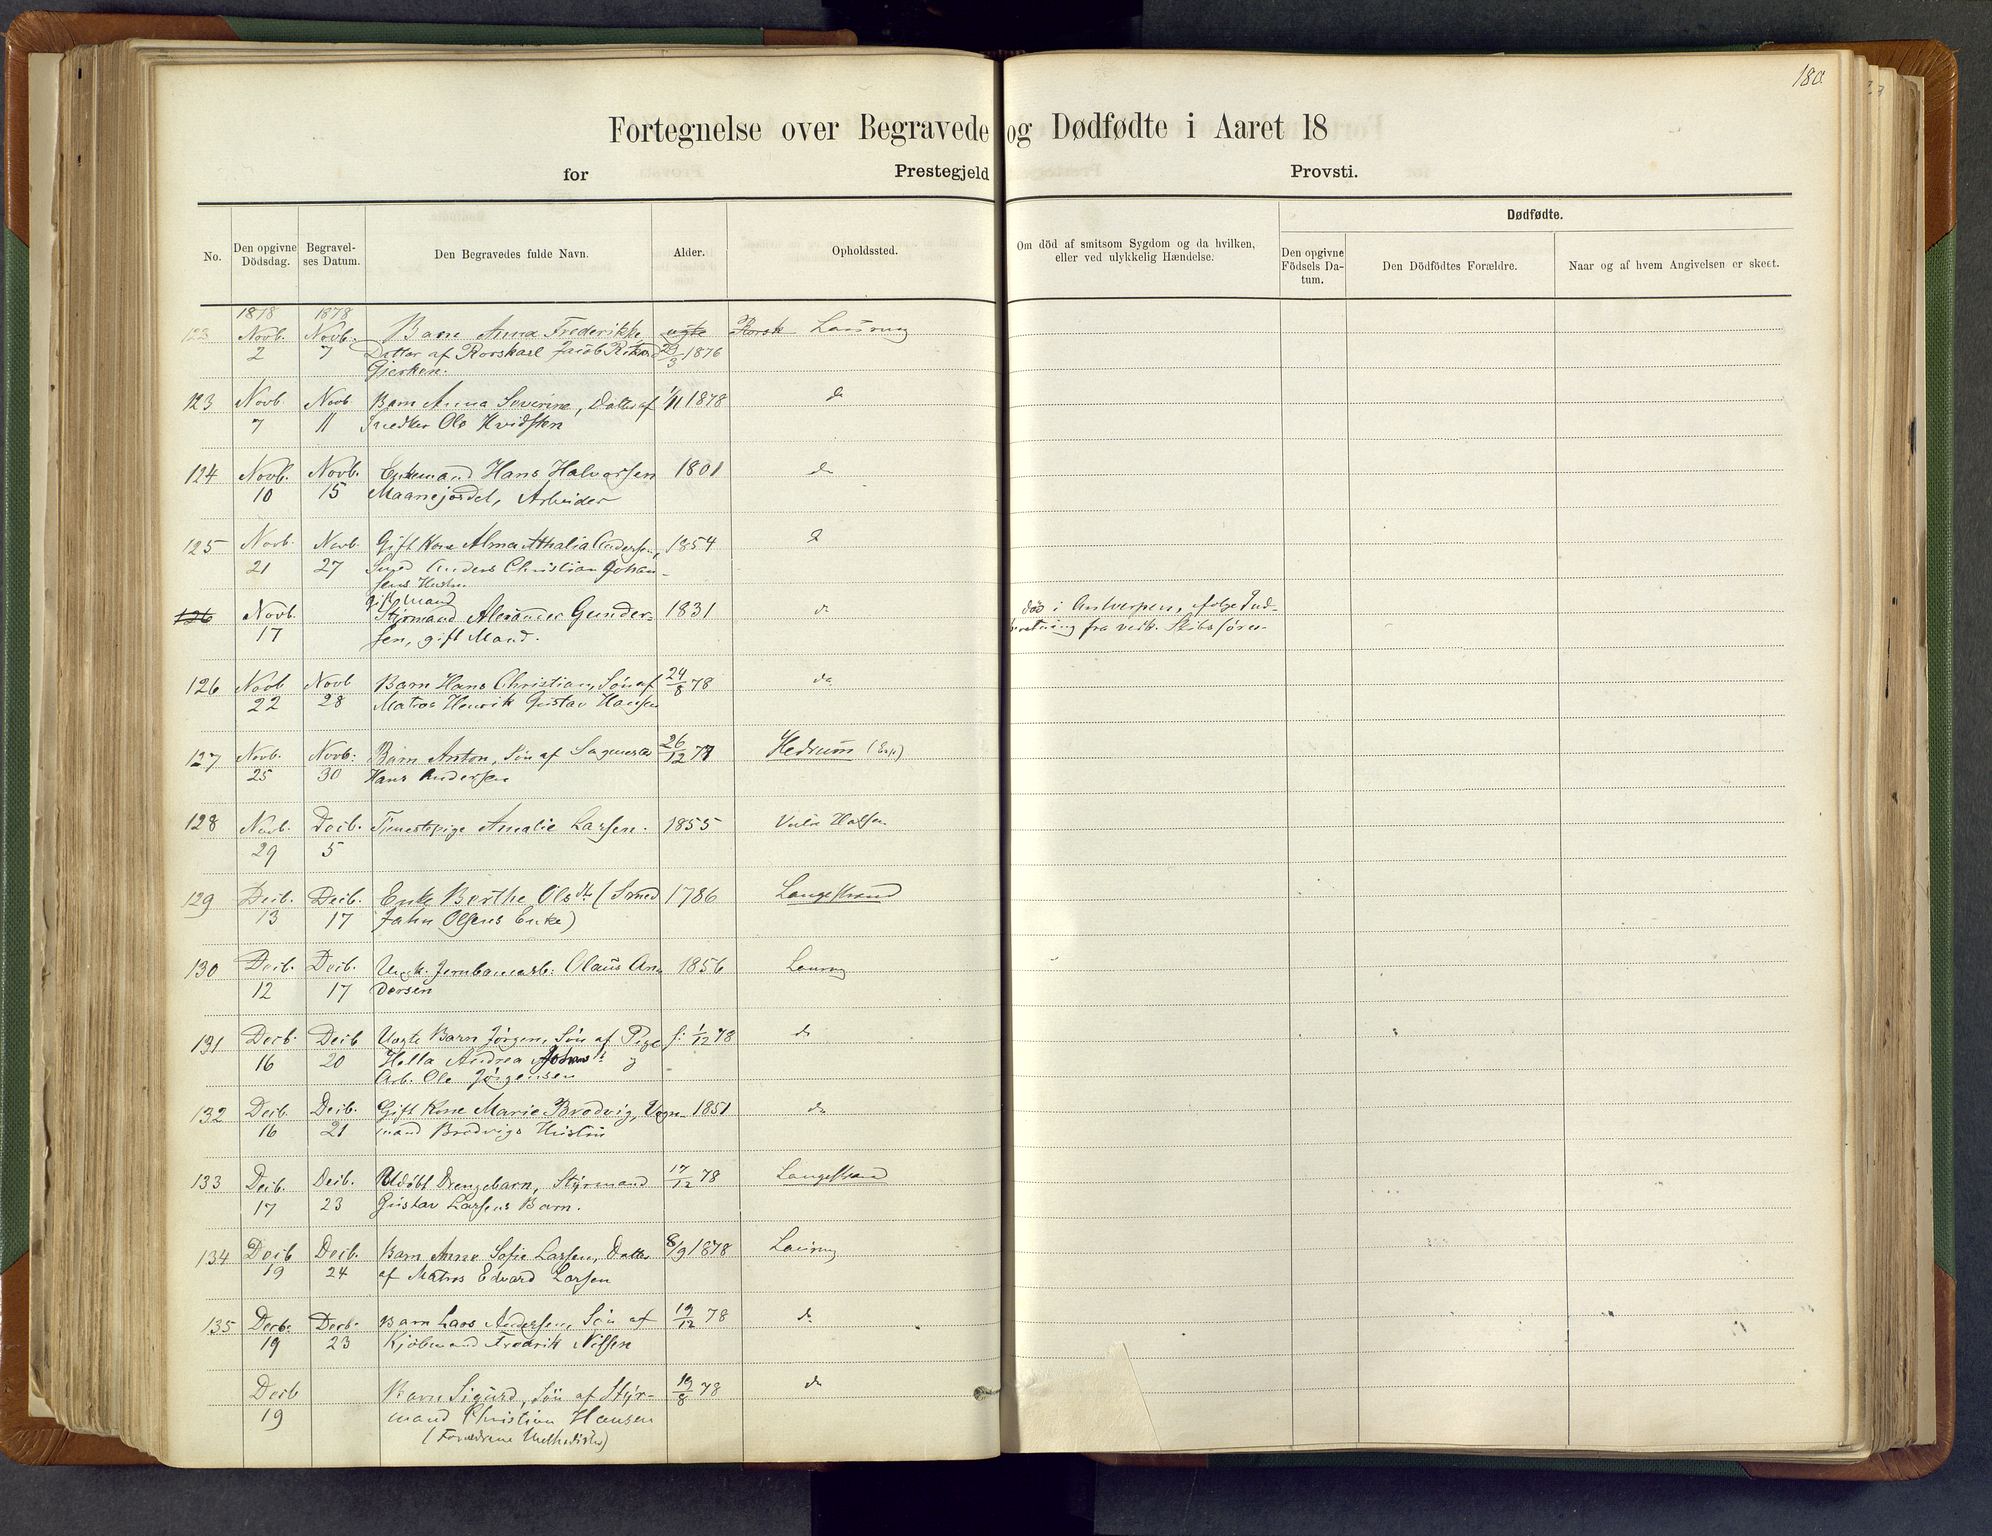 180
Fortegnelse over Begravede og Dødfødte i Aaret 18
for Prestegjeld Provsti.
No. Den opgivne Dödsdag. Begravelses Datum. Den Begravedes fulde Navn. Alder. Opholdssted. Om död af smitsom Sygdom og da hvilken, eller ved ulykkelig Hændelse. Dødfødte.
Den opgivne Födsels Datum. Den Dödfödtes Forældre. Naar og af hvem Angivelsen er skeet.
1878 1878
123 Novb. Novb. Barn Anna Frederikke, Laurvig
2 7 Datter af Jacob 3 1876
123 Novb. Novb. Barn Anna Severine, Datter af 1/11 1878 do
7 11 Snedker Ole Hvidsten
124 Novb. Novb. Enkemand Hans Halvorsen 1801 do
10 15 Maanejordet, Arbeider
125 Novb. Novb. Gift Kone Alma Athalia Andersen, 1854 do
21 27 Smed Anders Christian Johan-
sens Hustru
gift Mand
126 Novb. Styrmand Alexander Gunder- 1831 do død i Antverpen, ifølge Ind-
17 sen, gift Mand. beretning fra vedk. Skibsfører
126 Novb Novb Barn Hans Christian, Søn af 24/8 78 do
22 28 Matros Henrik Gustav Hansen
127 Novb. Novb: Barn Anton, Søn af 26/12 77 Hedrum
25 30 Hans Andersen
128 Novb. Decb. Tjenestepige Amalie Larsen. 1855 Halsen
29 5
129 Decb. Decb. Enke Berthe Olsdt. (Smed 1786 Langestrand
13 17 John Olsens Enke)
130 Decb. Decb. Ungk. Jernbanearb: Olaus An- 1856 Laurvig
12 17 dersen
131 Decb. Decb Uægte Barn Jørgen, Søn af Pige f: 1/12 78 do
16 20 Andrea
Arb. Ole Jørgensen
132 Decb. Decb. Gift Kone Marie Brodvig, Vogn- 1851 do
16 21 mand Brodvigs Hustru
133 Decb. Decb. Udøbt Drengebarn, Styrmand 17/12 78 Langestrand
17 23 Gustav Larsens Barn.
134 Decb Decb. Barn Anna Sofie Larsen, Datter 8/9 1878 Laurvig
19 24 af Matros Edvard Larsen
135 Decb. Decb. Barn Lars Andersen, Søn af 19/12 78 do
19 23 Kjøbmand Fredrik Nilsen
Decb Barn Sigurd, Søn af Styr- 19/8 78 do
19 mand Christian Hansen
(Forældrene Methodister)